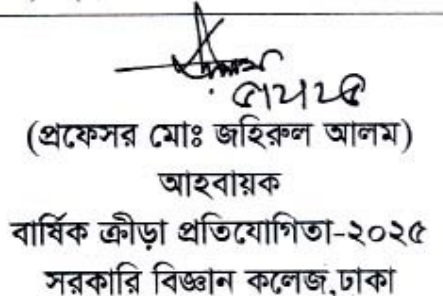 (প্রফেসর মোঃ জহিরুল আলম)
আহবায়ক
বার্ষিক ক্রীড়া প্রতিযোগিতা-২০২৫
সরকারি বিজ্ঞান কলেজ,ঢাকা